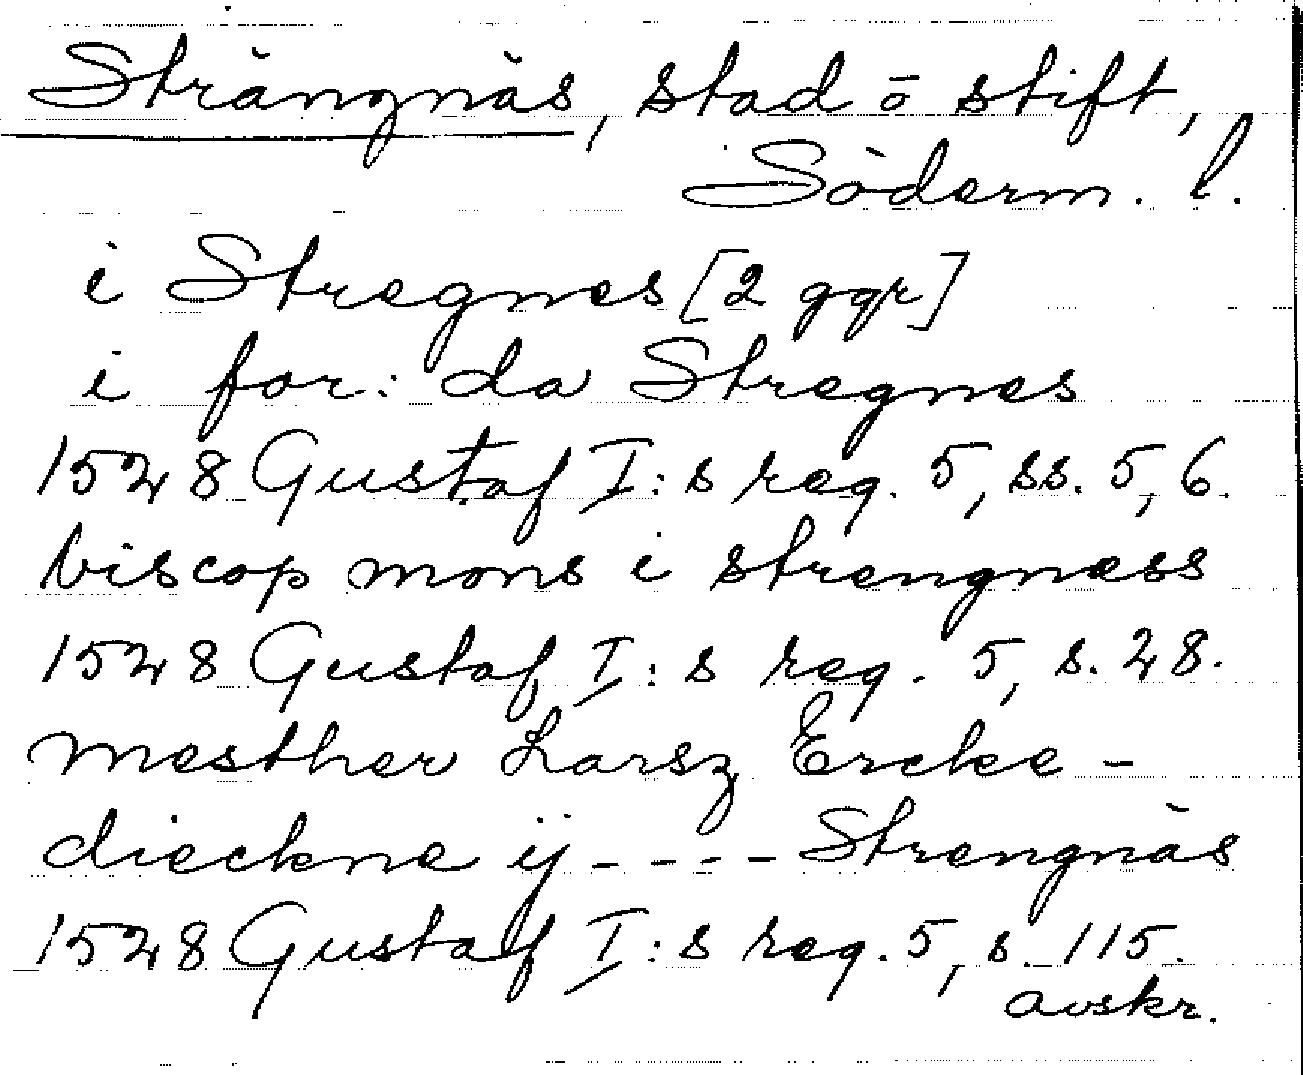 Strängnäs, stad o stift,
Söderm. l.
i Stregnes [2 ggr]
i for: da Stregnes
1528 Gustaf I:s reg. 5, ss. 5, 6.
biscop mons i strengness
1528 Gustaf I:s reg. 5, s. 28.
mesther Larsz Ercke-
dieckne ij - - - - Strengnäs
1528 Gustaf I:s reg. 5, s. 115.
avskr.